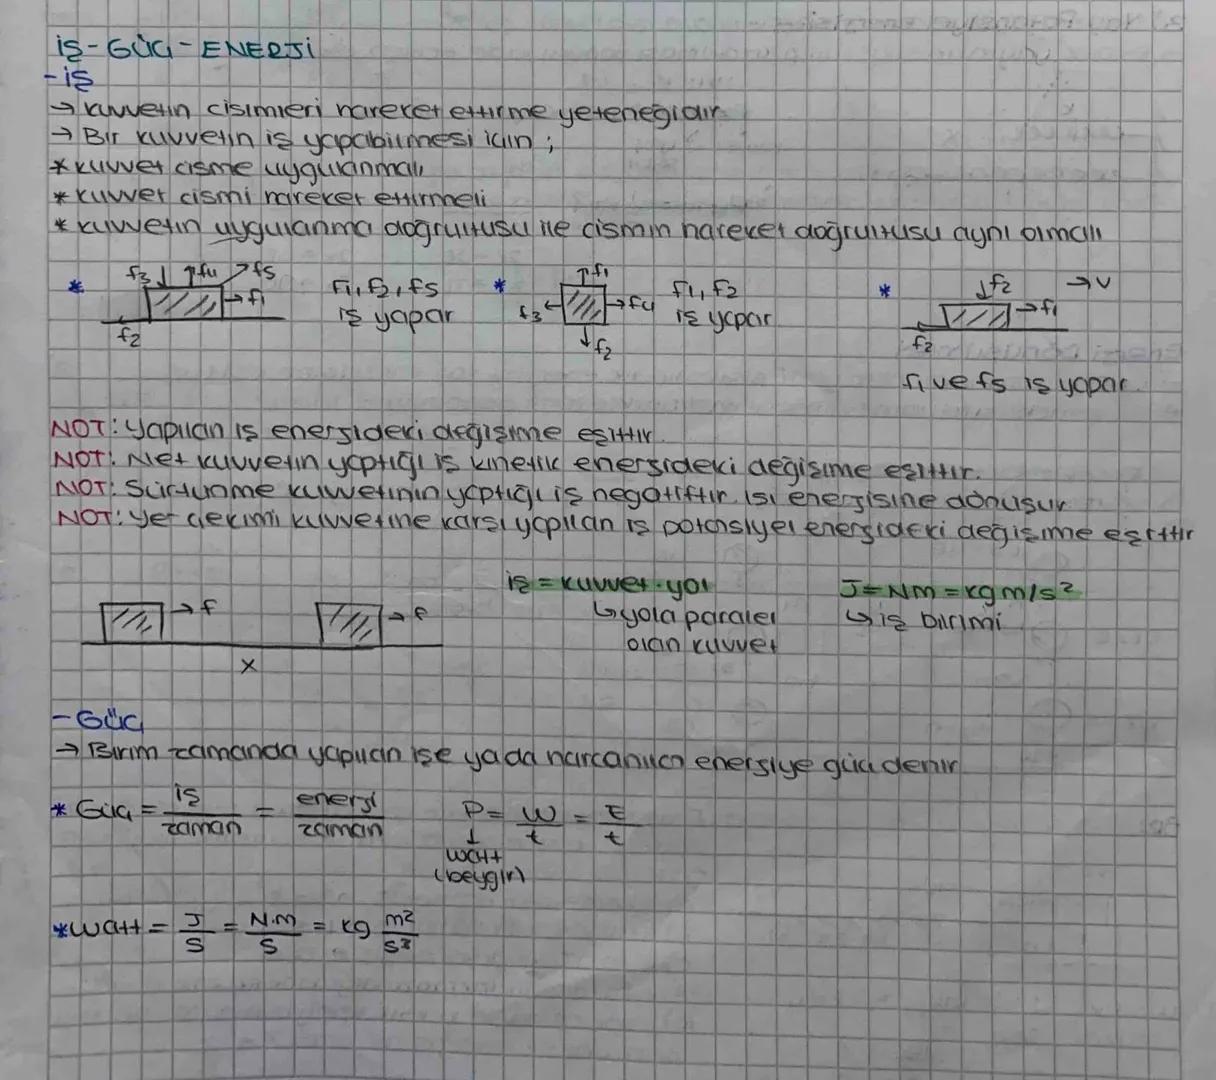 İŞ-GÜÇ-ENERJİ
-İŞ
→ kuvvetin cisimleri hareket ettirme yeteneğidir
→ Bir kuvvetin iş yapabilmesi için ;
* kuvvet cisme uygulanmalı
* kuvvet cismi hareket ettirmeli
* kuvvetin uygulanma doğrultusu ile cismin hareket doğrultusu aynı olmalı
* f3 f4 f5 f1 f2
f1, f2, f5
iş yapar
* f1 f3 f4 f2
f1, f2
iş yapar
* f2 v f1 f2
f1 ve fs iş yapar
NOT: Yapılan iş enerjideki değişime eşittir.
NOT: Net kuvvetin yaptığı iş kinetik enerjideki değişime eşittir.
NOT: Sürtünme kuvvetinin yaptığı iş negatiftir. ısı enerjisine dönüşür
NOT: Yer çekimi kuvvetine karşı yapılan iş potansiyel enerjideki değişime eşittir
iş = kuvvet.yol J=Nm=kgm/s²
↳yola paralel ↳iş birimi
olan kuvvet
→f →f
x
-GÜÇ
→ Birim zamanda yapılan işe yada harcanılan enerjiye güç denir
* Güç = iş/zaman = enerji/zaman P = W/t = E/t
↓
watt
(beygir)
*Watt = J/S = N.m/S = kg m²/s³